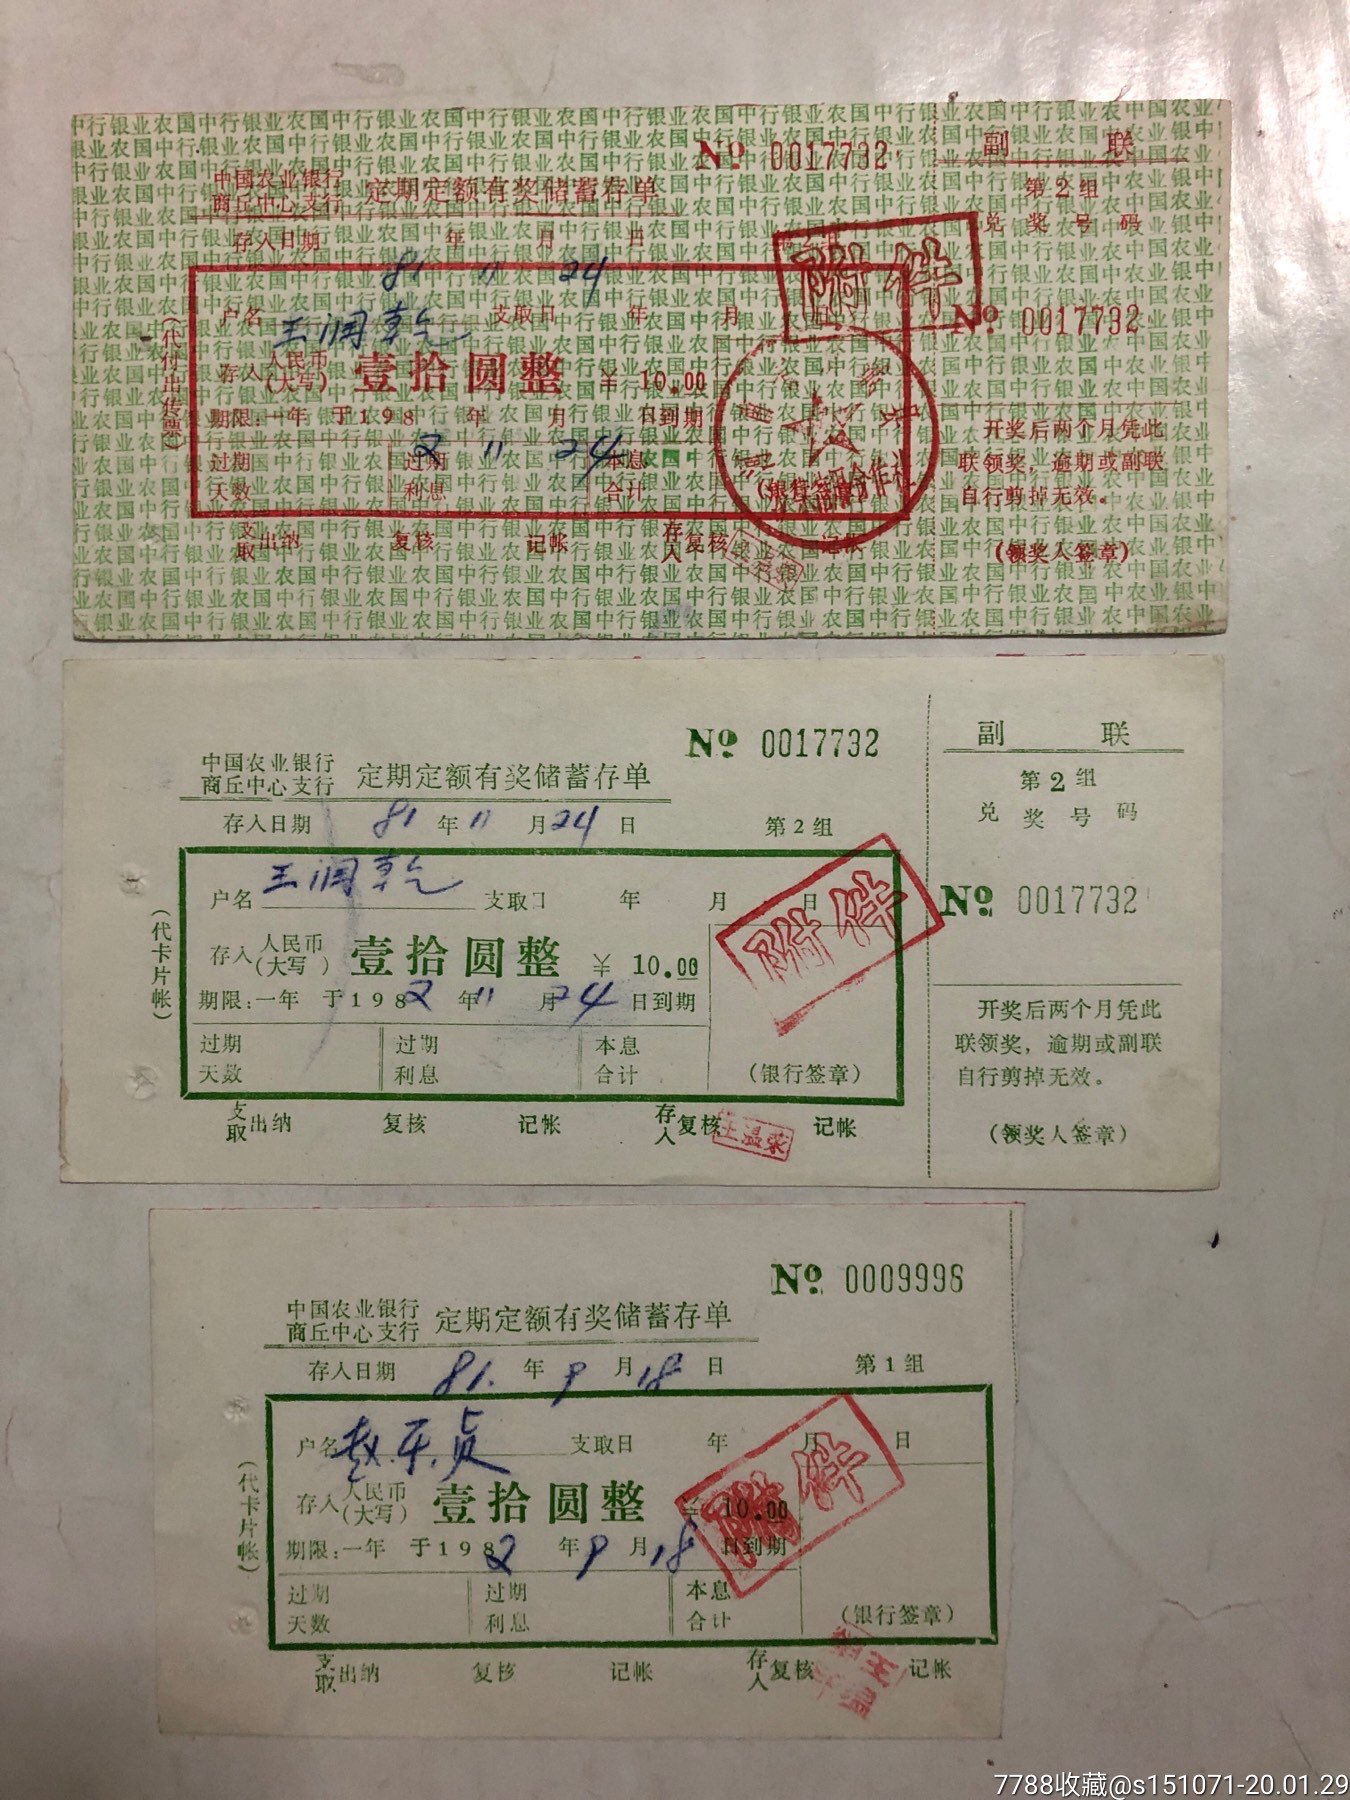 No 0017732
副 联
中国农业银行
商丘中心支行
定期定额有奖储蓄存单
第2组
兑奖号码
存入日期 81年11月24日
附件
户名 王润乾 支取日 年 月
No 0017732
存入人民币(大写) 壹拾圆整 ¥10.00
期限:一年 于1982年11月24日到期
(代付出传票)
过期天数 过期利息 本息合计
信用合作社
开奖后两个月凭此
联领奖,逾期或副联
自行剪掉无效。
支取 出纳 复核 记帐 存入 复核 记帐
(领奖人签章)
No 0017732
副 联
中国农业银行
商丘中心支行
定期定额有奖储蓄存单
第2组
兑奖号码
存入日期 81年11月24日 第2组
附件
户名 王润乾 支取日 年 月 日
No 0017732
存入人民币(大写) 壹拾圆整 ¥10.00
(代卡片帐)
期限:一年 于1982年11月24日到期
开奖后两个月凭此
联领奖,逾期或副联
自行剪掉无效。
过期天数 过期利息 本息合计 (银行签章)
支取 出纳 复核 记帐 存入 复核 王温荣 记帐
(领奖人签章)
No 0009996
中国农业银行
商丘中心支行
定期定额有奖储蓄存单
存入日期 81.年9月18日 第1组
附件
户名 支取日 年 月 日
存入人民币(大写) 壹拾圆整 ¥10.00
(代卡片帐)
期限:一年 于1982年9月18日到期
过期天数 过期利息 本息合计 (银行签章)
支取 出纳 复核 记帐 存入 复核 记帐
7788收藏@s151071-20.01.29